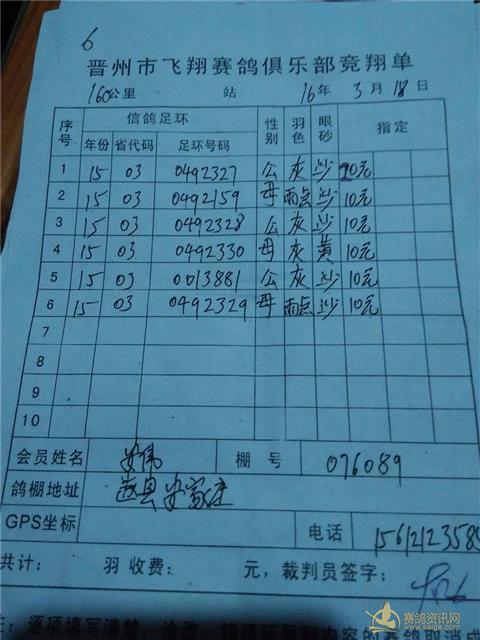 6
晋州市飞翔赛鸽俱乐部竞翔单
160公里 站 16年 3月 18日
序号 信鸽足环 性别 羽色 眼砂 指定
年份 省代码 足环号码
1 15 03 0492327 公 灰 沙 10元
2 15 03 0492159 母 雨点 沙 10元
3 15 03 0492328 公 灰 沙 10元
4 15 03 0492330 母 灰 黄 10元
5 15 03 0013881 公 灰 沙 10元
6 15 03 0492329 母 雨点 沙 10元
7
8
9
10
会员姓名 棚号 076089
鸽棚地址 赵县宋家庄
GPS坐标 电话 1561212358
共计: 羽 收费: 元, 裁判员签字:
注: 逐项填写清楚
赛鸽资讯网
www.saige.com